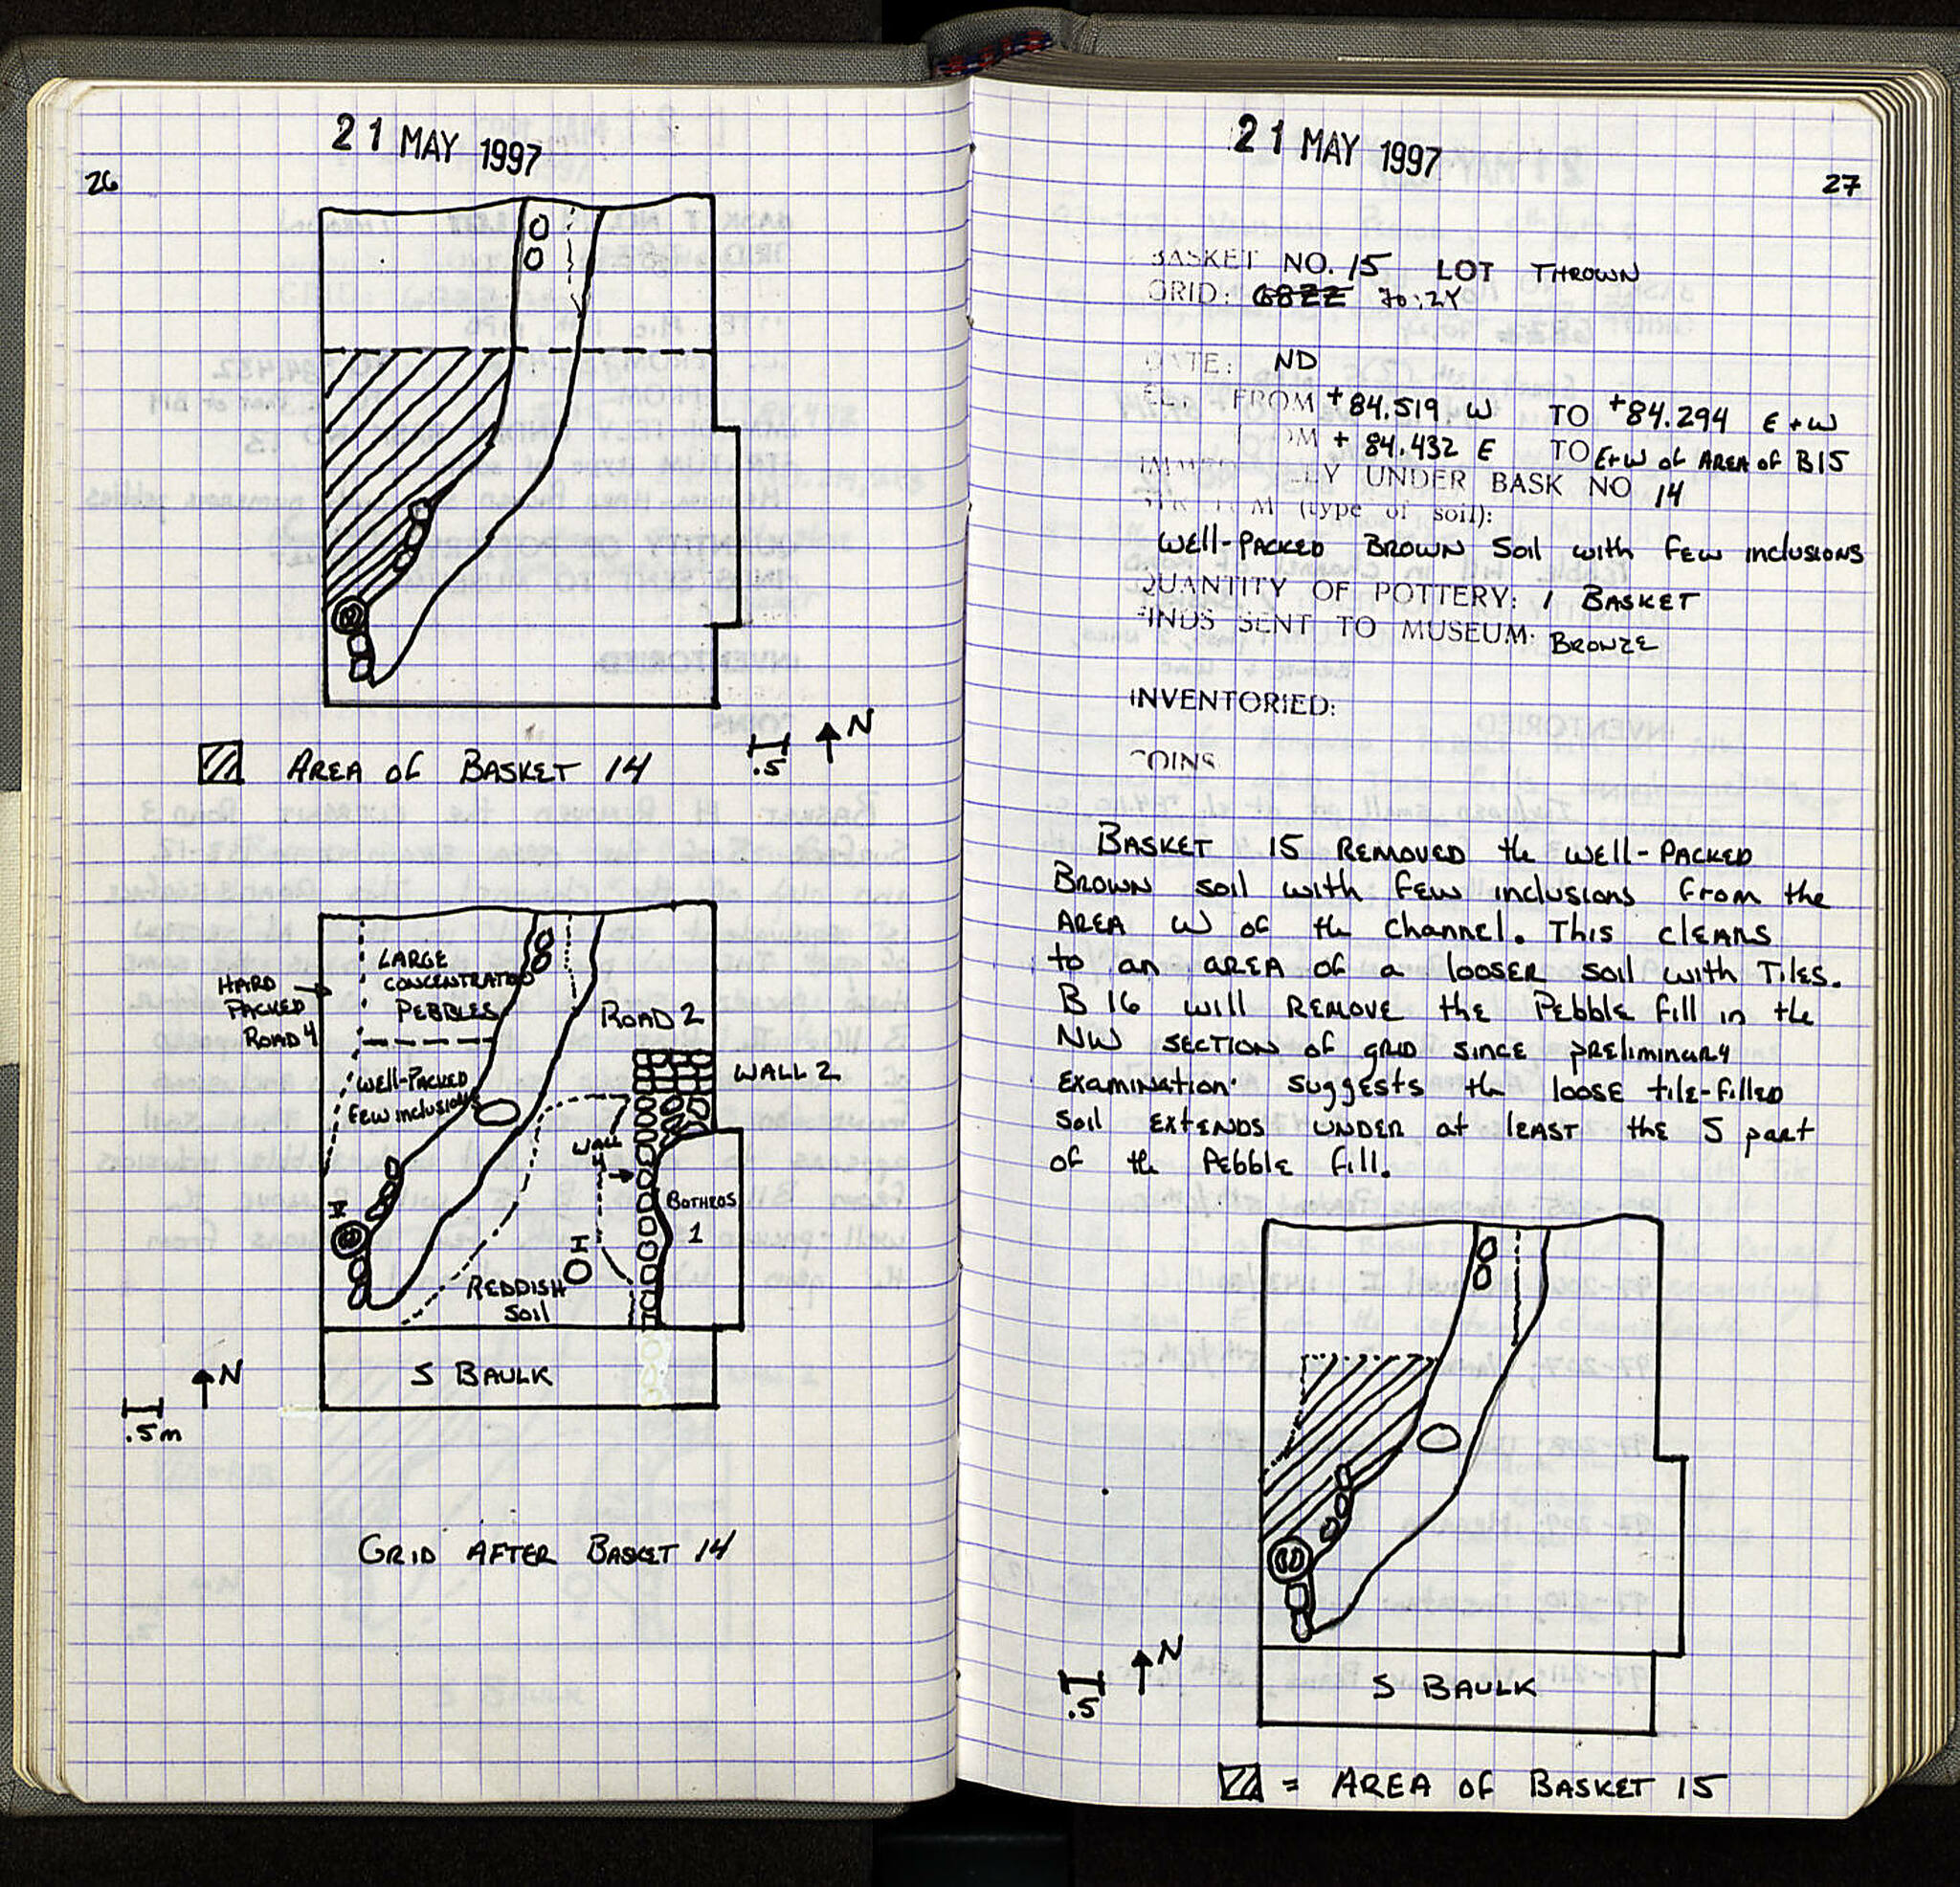 21 MAY 1997
26
AREA of BASKET 14
.5
N
HARD
PACKED
ROAD 4
LARGE
CONCENTRATED
PEBBLES
ROAD 2
WALL 2
WELL-PACKED
FEW inclusions
WALL
4
BOTHROS
1
V
I
REDDISH
SOIL
S BAULK
N
.5m
GRID AFTER BASKET 14
21 MAY 1997
27
BASKET NO. 15 LOT THROWN
GRID: G8ZZ 70:2Y
DATE: ND
EL. FROM +84.519 W TO +84.294 E+W
FROM + 84.432 E TO E+W of AREA of B15
UNDER BASK NO 14
(type of soil):
WELL-PACKED BROWN Soil with FEW inclusions
QUANTITY OF POTTERY: 1 BASKET
FINDS SENT TO MUSEUM: BRONZE
INVENTORIED:
COINS
BASKET 15 REMOVED the WELL-PACKED
BROWN soil with FEW inclusions from the
AREA W of the channel. This CLEARS
to an AREA OF a LOOSER SOIL with TILES.
B 16 will REMOVE the PEBBLE fill in the
NW SECTION of grid since preliminary
Examination suggests the loose tile-filled
soil EXTENDS UNDER at least the S part
of the PEBBLE fill.
S BAULK
N
.5
= AREA of BASKET 15